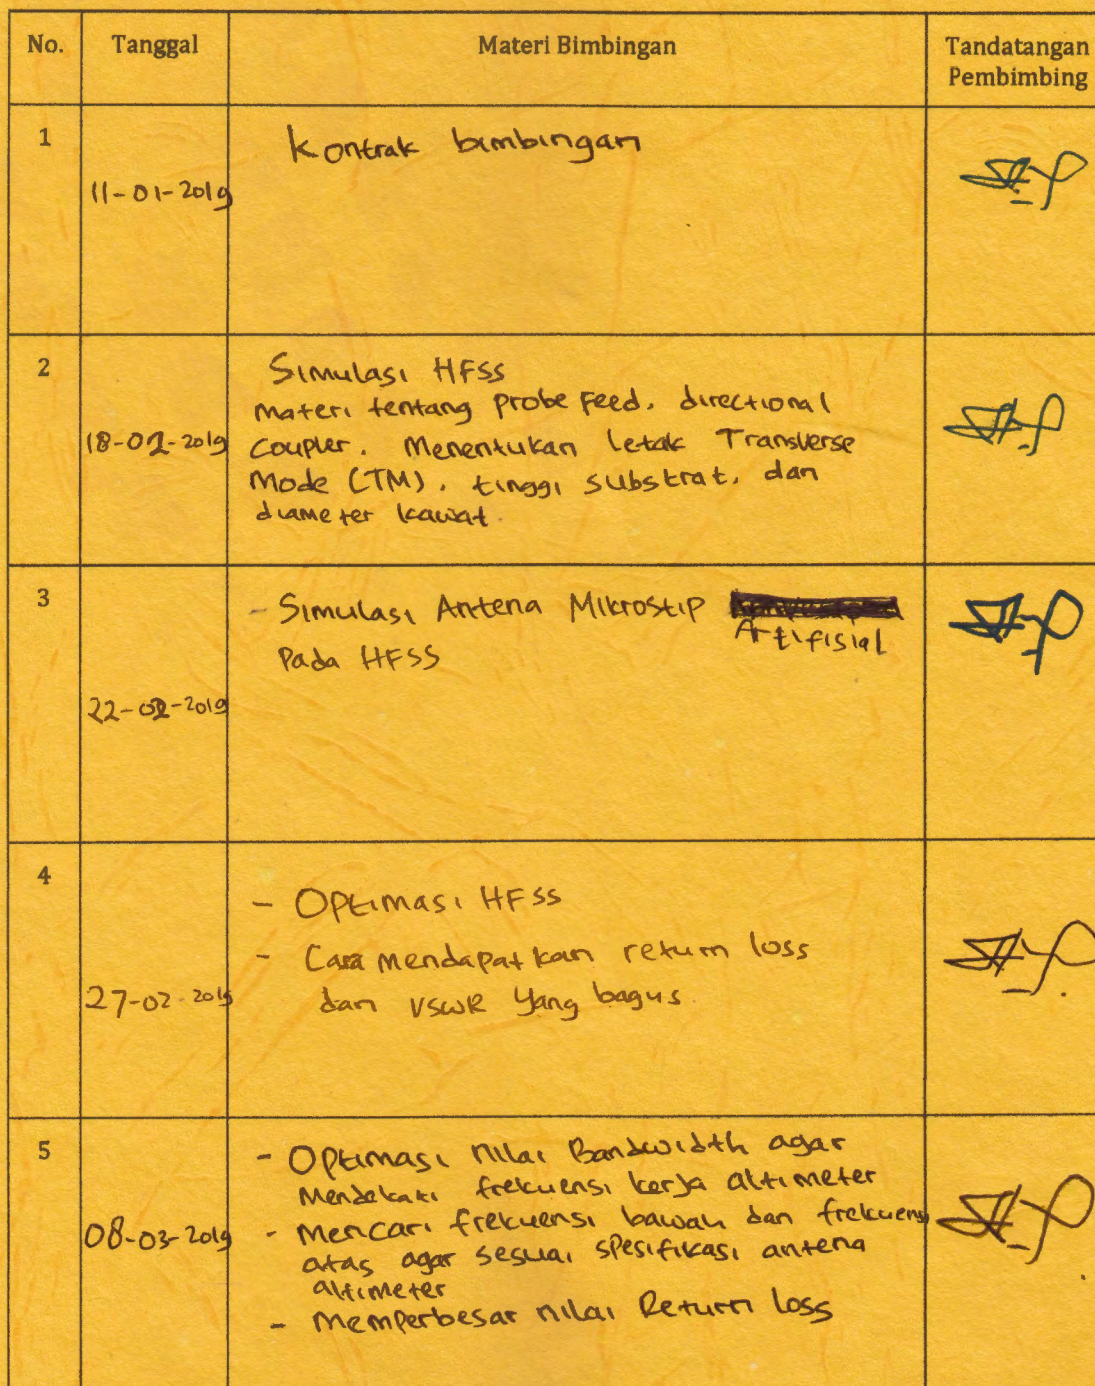 No.
Tanggal
Materi Bimbingan
Tandatangan
Pembimbing
1
11-01-2019
Kontrak bimbingan
2
18-02-2019
Simulasi HFSS
Materi tentang probe feed, directional
Coupler. Menentukan letak Transverse
Mode (TM), tinggi substrat, dan
diameter kawat.
3
22-02-2019
- Simulasi Antena Mikrostip
Artifisial
Pada HFSS
4
27-02-2019
- Optimasi HFSS
- Cara mendapatkan return loss
dan VSWR yang bagus.
5
08-03-2019
- Optimasi nilai Bandwidth agar
Mendekati frekuensi kerja altimeter
- Mencari frekuensi bawah dan frekuensi
atas agar sesuai spesifikasi antena
altimeter
- Memperbesar nilai Return loss